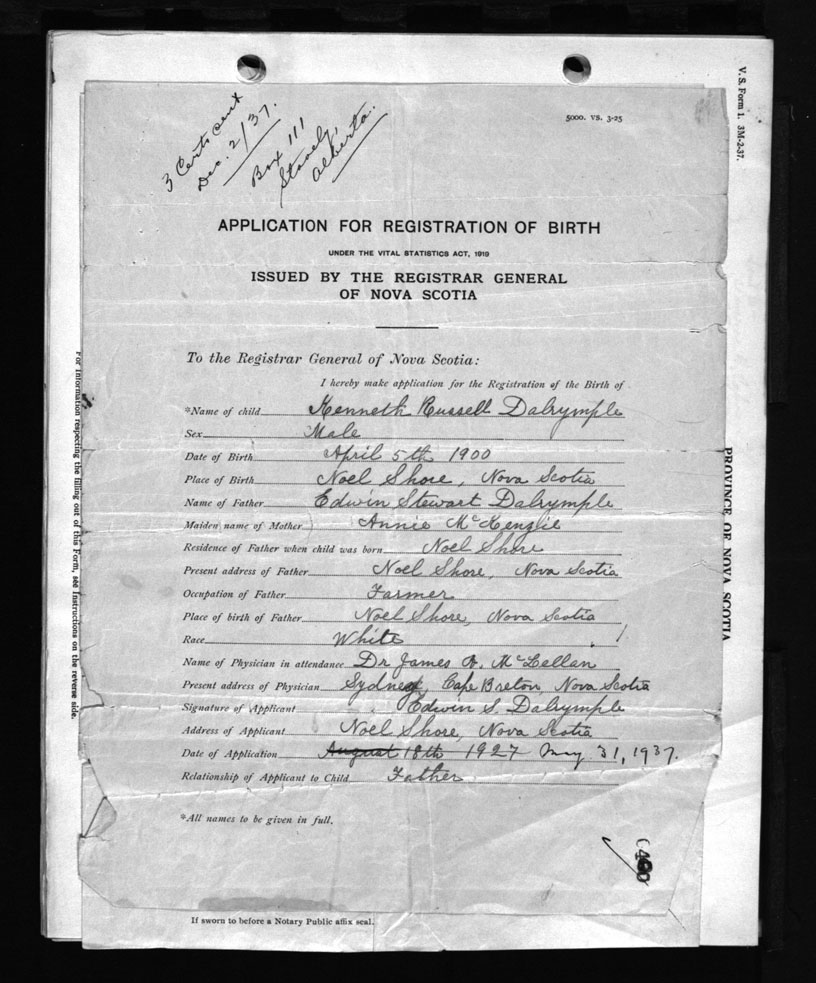 3 Certs sent
Dec. 2/37.
Box 111
Stavely,
Alberta.
5000. VS. 3-25
V. S. Form 1. 3M-2-37.
APPLICATION FOR REGISTRATION OF BIRTH
UNDER THE VITAL STATISTICS ACT, 1919
ISSUED BY THE REGISTRAR GENERAL
OF NOVA SCOTIA
To the Registrar General of Nova Scotia:
I hereby make application for the Registration of the Birth of
*Name of child Kenneth Russell Dalrymple
Sex Male
Date of Birth April 5th 1900
Place of Birth Noel Shore, Nova Scotia
Name of Father Edwin Stewart Dalrymple
Maiden name of Mother Annie McKenzie
Residence of Father when child was born Noel Shore
Present address of Father Noel Shore, Nova Scotia
Occupation of Father Farmer
Place of birth of Father Noel Shore, Nova Scotia
Race White
Name of Physician in attendance Dr James A. McLellan
Present address of Physician Sydney, Cape Breton, Nova Scotia
Signature of Applicant Edwin S. Dalrymple
Address of Applicant Noel Shore, Nova Scotia
Date of Application August 18th 1927 May. 31, 1937.
Relationship of Applicant to Child Father
*All names to be given in full.
If sworn to before a Notary Public affix seal.
For Information respecting the filling out of this Form, see Instructions on the reverse side.
PROVINCE OF NOVA SCOTIA